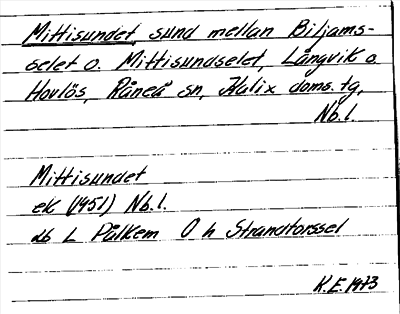 Mittisundet, sund mellan Biljams-
selet o. Mittisundselet, Långvik o.
Hovlös, Råneå sn, Kalix doms. tg,
Nb.l.
Mittisundet
ek (1951) Nb.l.
db L Pålkem O h Strandtorssel
K.E. 1973